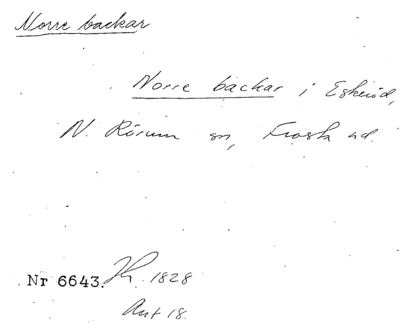 Norre backar
Norre backar i Eskeröd,
N. Rörum sn, Frosta hd.
Nr 6643. 1828
Ant 18.